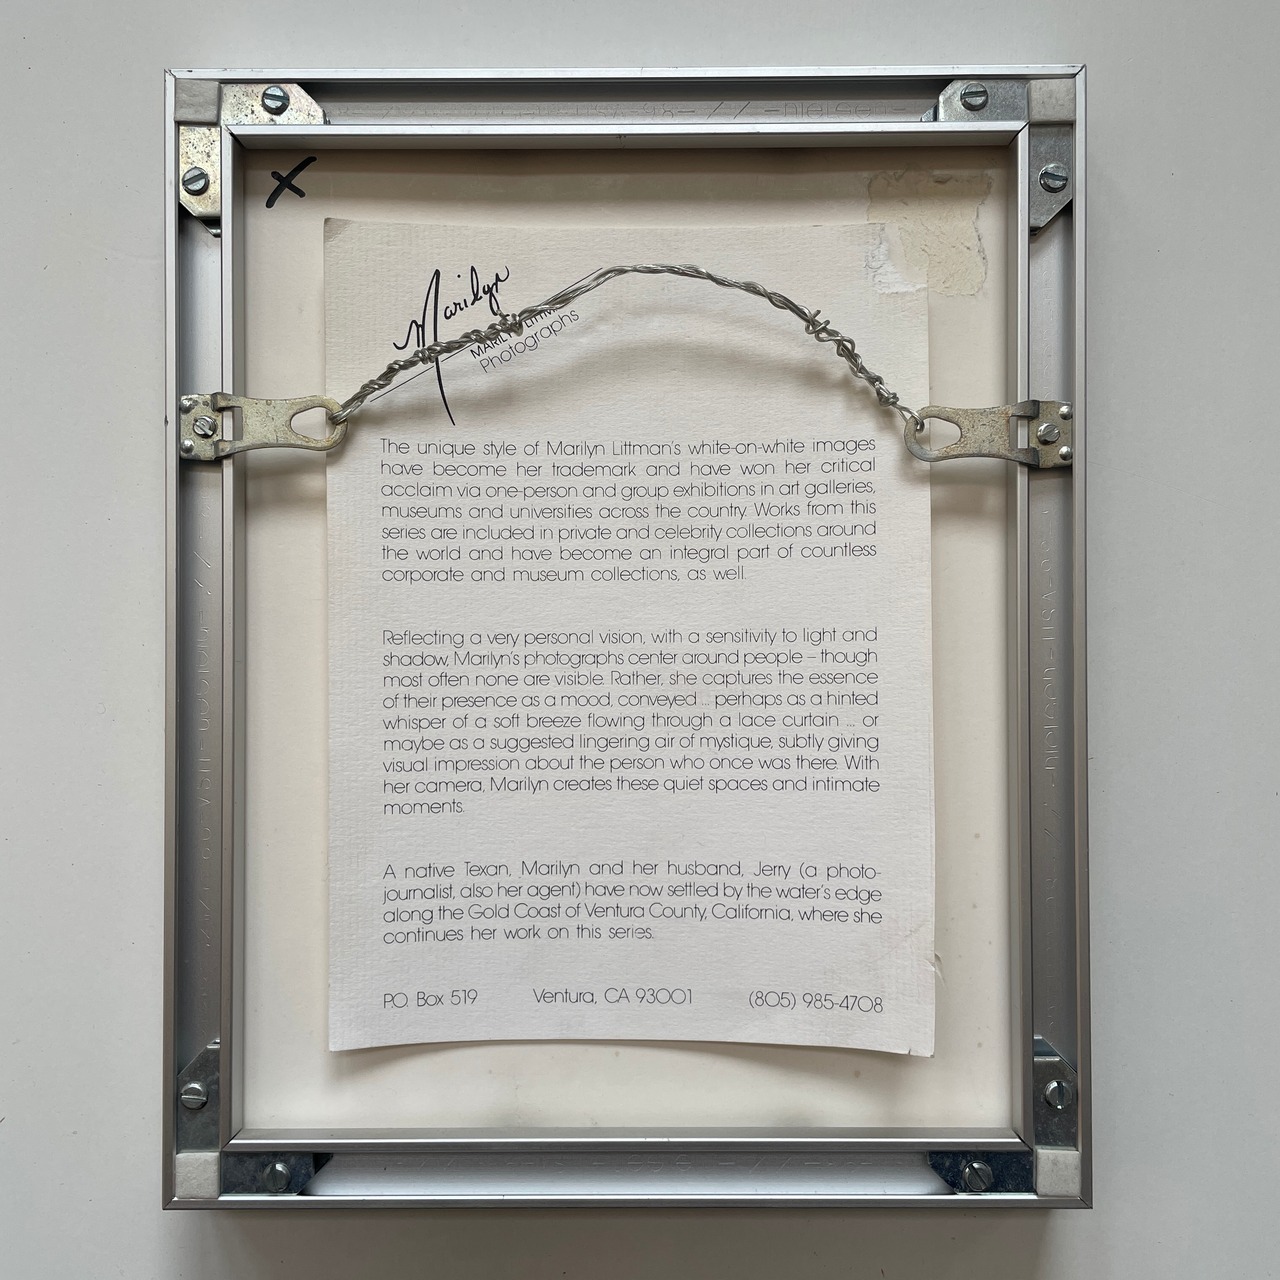 nielsen
X
Marilyn
MARILYN LITTM
Photographs
The unique style of Marilyn Littman's white-on-white images
have become her trademark and have won her critical
acclaim via one-person and group exhibitions in art galleries,
museums and universities across the country. Works from this
series are included in private and celebrity collections around
the world and have become an integral part of countless
corporate and museum collections, as well.
Reflecting a very personal vision, with a sensitivity to light and
shadow, Marilyn's photographs center around people – though
most often none are visible. Rather, she captures the essence
of their presence as a mood, conveyed ... perhaps as a hinted
whisper of a soft breeze flowing through a lace curtain ... or
maybe as a suggested lingering air of mystique, subtly giving
visual impression about the person who once was there. With
her camera, Marilyn creates these quiet spaces and intimate
moments.
A native Texan, Marilyn and her husband, Jerry (a photo-
journalist, also her agent) have now settled by the water's edge
along the Gold Coast of Ventura County, California, where she
continues her work on this series.
P.O. Box 519 Ventura, CA 93001 (805) 985-4708